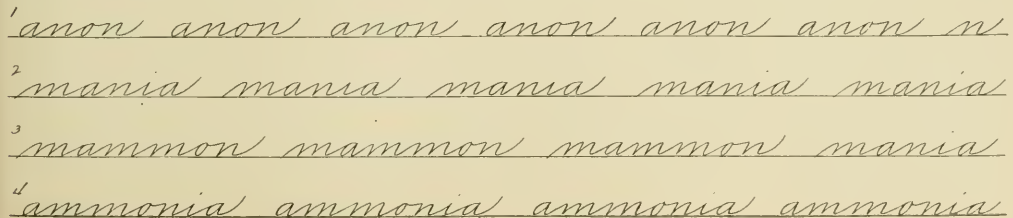 1 anon anon anon anon anon anon n
2 mania mania mania mania mania
3 mammon mammon mammon mania
4 ammonia ammonia ammonia ammonia